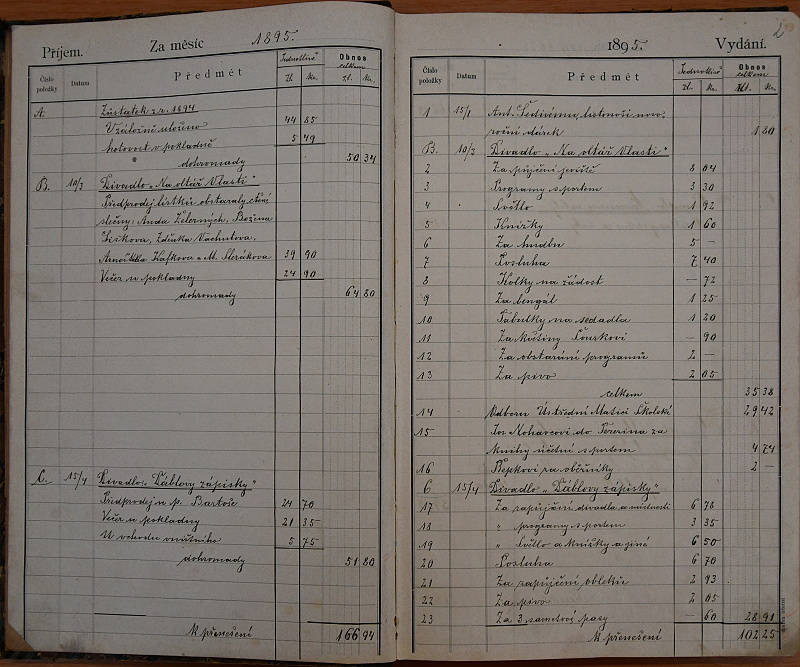 Příjem. Za měsíc 1895.
Číslo položky Datum Předmět Jednotlivě Obnos celkem
zl. kr. zl. kr.
A. Zůstatek z r. 1894
Vzáložně uloženo 44 85
hotovost v pokladně 5 49
dohromady 50 34
B. 10/3 Divadlo „Na oltář Vlasti"
Předprodej lístků obstaraly ctěné
slečny: Anda Železných, Božena
Vachutova,
Kafkova a M. 39 90
Večer u pokladny 24 90
dohromady 64 80
C. 15/4 Divadlo: „Ďáblovy zápisky"
Předprodej u p. Bartoše 24 70
Večer u pokladny 21 35
U vchodu vnitřního 5 75
dohromady 51 80
K přenešení 166 94
2
1895. Vydání.
Číslo položky Datum Předmět Jednotlivě Obnos celkem
zl. kr. zl. kr.
1 15/1 Ant. Šedivému, listonoši novo-
roční dárek 1 80
B. 10/3 Divadlo „Na oltář Vlasti"
2 Za půjčení jeviště 8 04
3 Programy s portem 3 30
4 Světlo 1 92
5 Knížky 1 60
6 Za hudbu 5 —
7 Posluha 7 40
8 Kolky na žádost — 72
9 Za bengál 1 25
10 Tabulky na sedadla 1 20
11 Za květiny — 90
12 Za obstarání programů 2 —
13 Za pivo 2 05
celkem 35 38
14 Odboru Ústřední Matici Školské 29 42
15 Jos. do za
knihy účetní s portem 4 74
16 Řepkovi za oběžníky 2 —
C 15/4 Divadlo „Ďáblovy zápisky"
17 Za zapůjčení divadla a místnosti 6 78
18 „ programy s portem 3 35
19 „ Světlo a knížky a jiné 6 50
20 Posluha 6 70
21 Za zapůjčení obleků 2 93
22 Za pivo 2 05
23 Za 3 pasy — 60 28 91
K přenešení 102 25